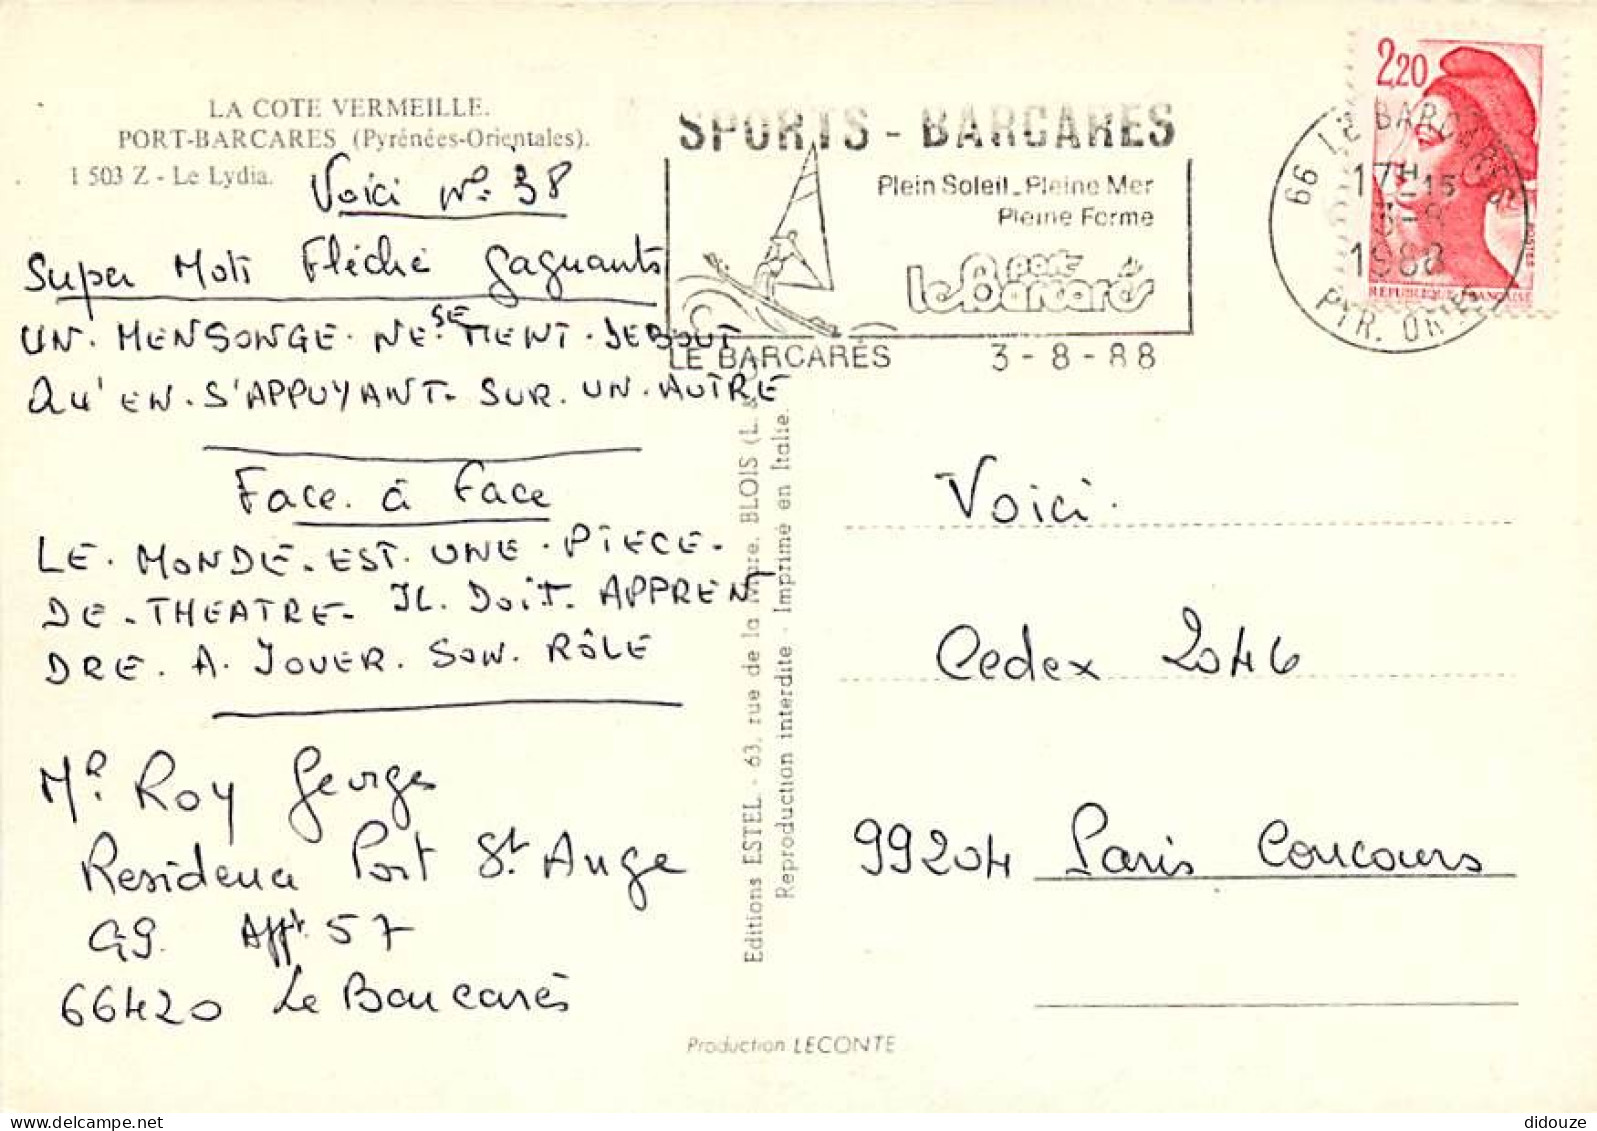 LA COTE VERMEILLE.
PORT-BARCARES (Pyrénées-Orientales).
1 503 Z - Le Lydia.
Voici N° 38
Super Mots Fléché gagnants
UN. MENSONGE. NE. SE TIENT. DEBOUT
QU'EN. S'APPUYANT. SUR. UN. AUTRE
Face. à Face
LE. MONDE. EST. UNE. PIECE.
DE. THEATRE. IL. DOIT. APPREN
DRE. A. JOUER. SON. RÔLE
Mr. Roy Georges
Residence Port St Ange
G9. Appt. 57
66420 Le Barcarès
SPORTS - BARCARES
Plein Soleil - Pleine Mer
Pleine Forme
port
le Barcarès
LE BARCARÈS 3-8-88
2,20
REPUBLIQUE FRANÇAISE
66 LE BARCARES
17H15
3-8
1988
PYR. ORIES
Editions ESTEL - 63, rue de la Mare, BLOIS (L. &
Reproduction interdite - Imprimé en Italie.
Voici.
Cedex 2046
99204 Paris Concours
Production LECONTE
didouze